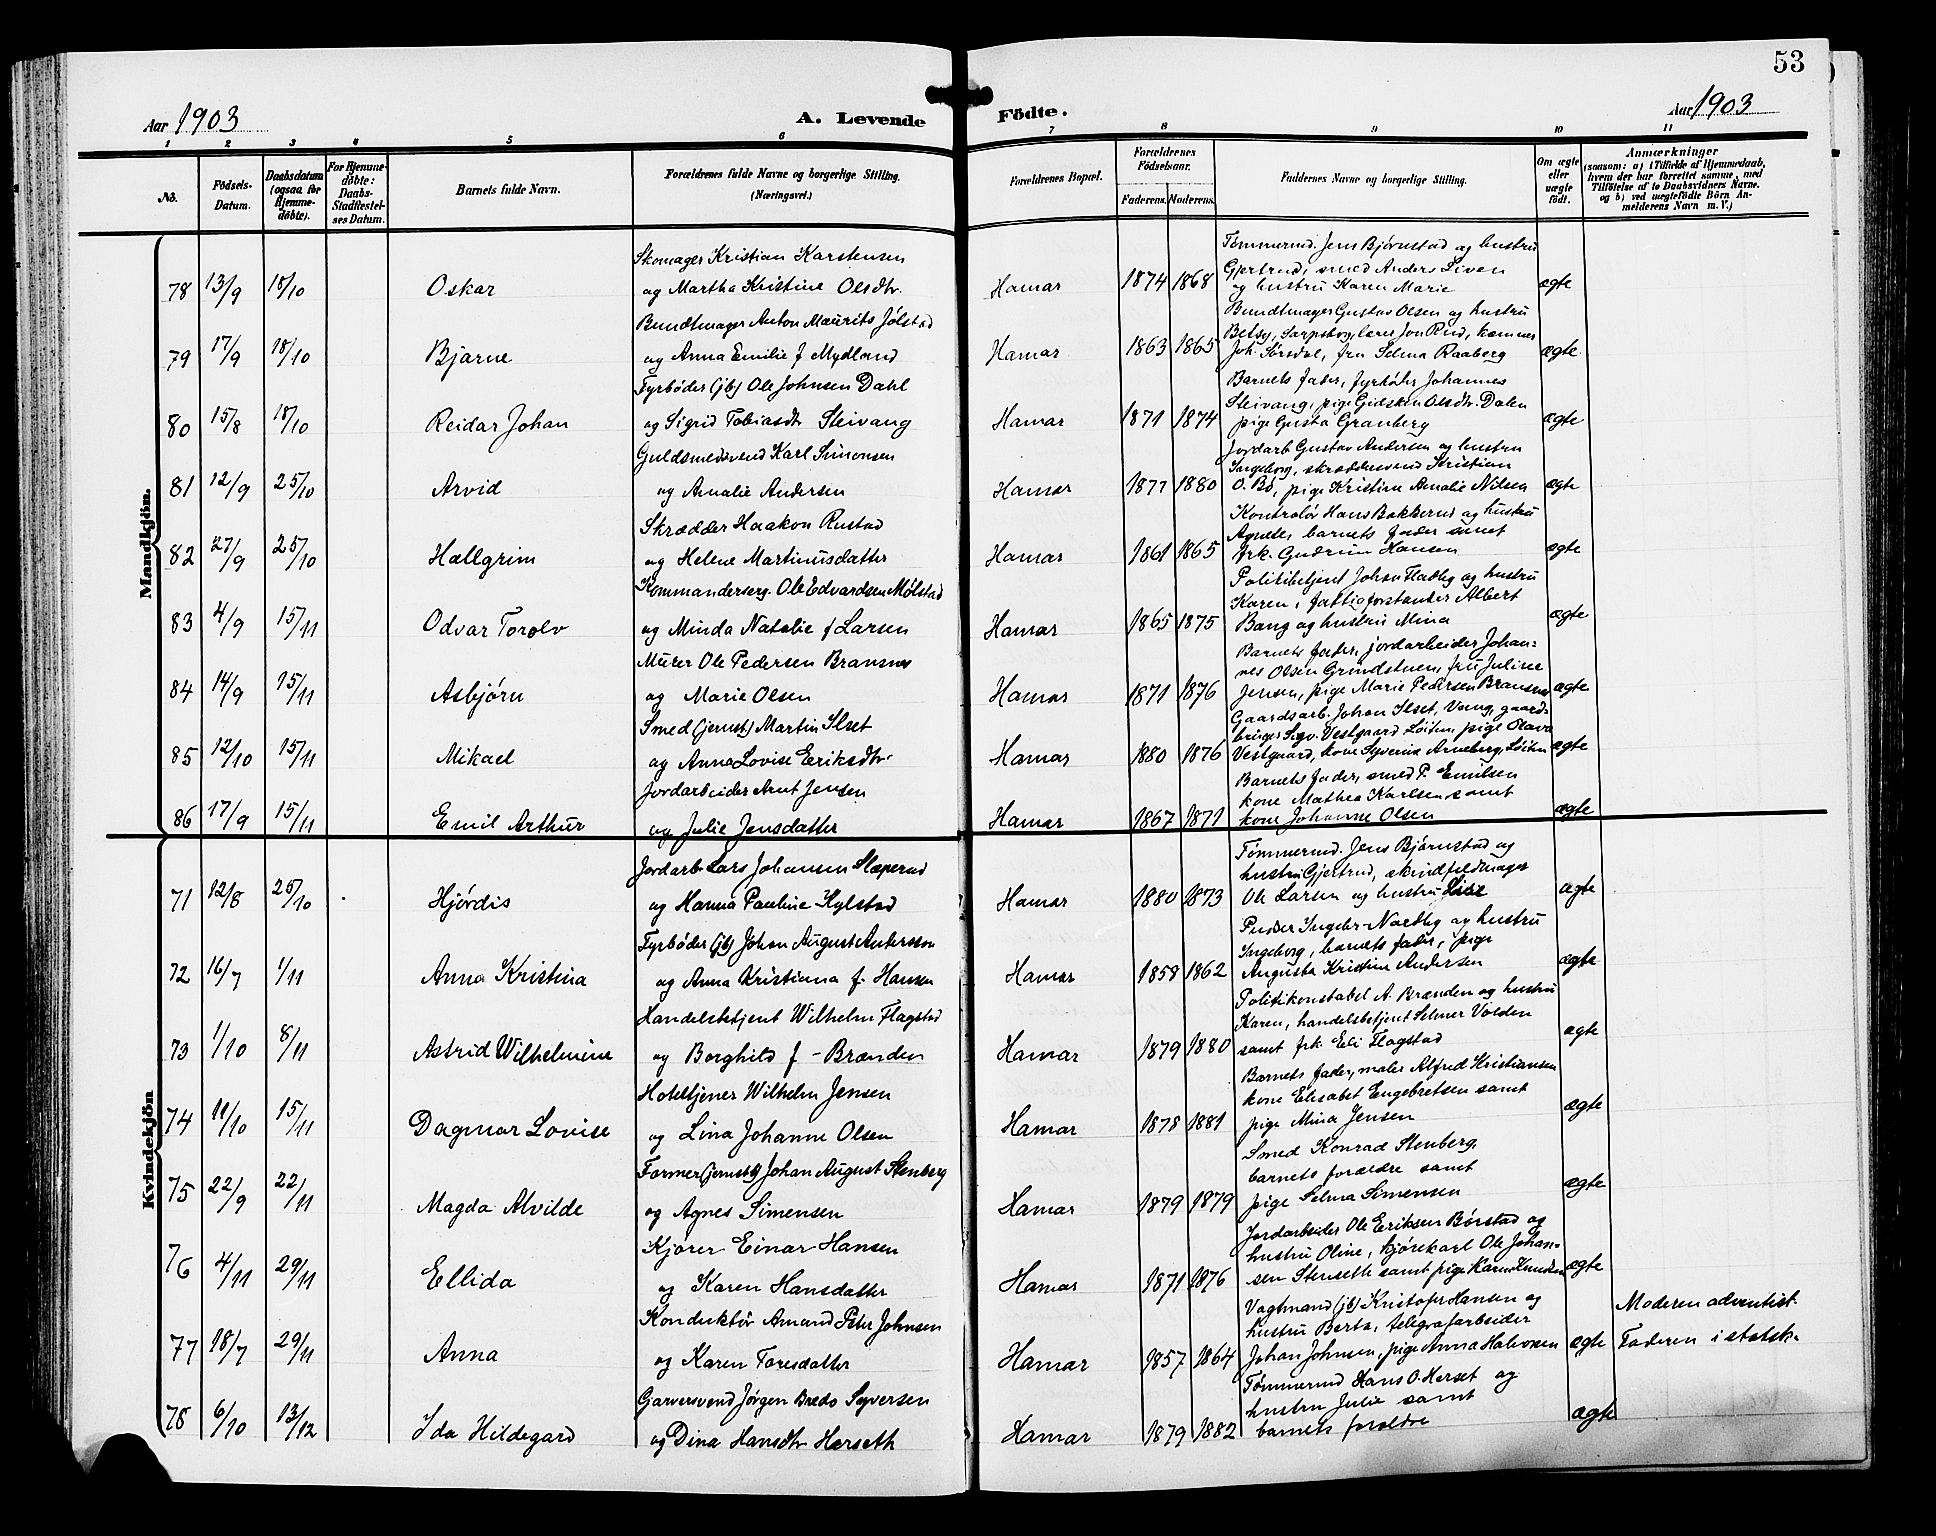 53
Aar 1903
A. Levende
Födte.
Aar 1903
1 2 3 4 5 6 7 8 9 10 11
No.
Födsels-Datum.
Daabsdatum (ogsaa for Hjemmedöbte).
For Hjemmedöbte: Daabs-Stadfestelses Datum.
Barnets fulde Navn.
Forældrenes fulde Navne og borgerlige Stilling. (Næringsvei.)
Forældrenes Bopæl.
Forældrenes Födselsaar.
Faderens.
Moderens.
Faddernes Navne og borgerlige Stilling.
Om ægte eller uægte födt.
Anmærkninger
(saasom: a) i Tilfælde af Hjemmedaab, hvem der har forrettet samme, med Tilföielse af to Daabsvidners Navne, og b) ved uægtefödte Börn Anmelderens Navn m. V.)
Mandkjön.
78 13/9 18/10 Oskar
Skomager Kristian Karstensen
og Martha Kristine Olsdtr.
Hamar 1874 1868
Tømmermd. Jens Bjørnstad og hustru
Gjertrud, smed Anders Liven
og hustru Karen Marie
ægte
79 17/9 18/10 Bjarne
Bundtmager Anton Maurits Jølstad
og Anna Emilie f Mydland
Hamar 1863 1865
Bundtmager Gustav Olsen og hustru
Betsy, Sarpsborg, lærer Jon Rud, kæmner
Joh. Sørsdal, fru Selma Raaberg
ægte
80 15/8 18/10 Reidar Johan
Fyrbøder (jb) Ole Johnsen Dahl
og Sigrid Tobiasdtr Sleivang
Hamar 1871 1874
Barnets fader, fyrbøder Johannes
Sleivang, pige Gidsken Olsdtr. Dalen
pige Gusta Granberg
ægte
81 12/9 25/10 Arvid
Guldsmedsvend Karl Simonsen
og Amalie Andersen
Hamar 1877 1880
Jordarb Gustav Andersen og hustru
Ingeborg, skræddersvend Kristian
O. Bø, pige Kristine Amalie Nilsen
ægte
82 27/9 25/10 Hallgrim
Skrædder Haakon Rustad
og Helene Martinusdatter
Hamar 1861 1865
Kontrolør Hans Bakkerud og hustru
Agnete, barnets fader samt
frk. Gudrun Hansen
ægte
83 4/9 15/11 Odvar Torolv
Kommanderserg. Ole Edvardsen Mølstad
og Minda Natalie f Larsen
Hamar 1865 1875
Politibetjent Johan Flatby og hustru
Karen, fattigforstander Albert
Bang og hustru Mina
ægte
84 14/9 15/11 Asbjørn
Murer Ole Pedersen Bransnes
og Marie Olsen
Hamar 1871 1876
Barnets fader, jordarbeider Johan-
nes Olsen Grindstuen, fru Juline
Jensen, pige Marie Pedersen Bransnes
ægte
85 12/10 15/11 Mikael
Smed (jernst) Martin Ilset
og Anna Lovise Eriksdtr.
Hamar 1880 1876
Gaardsarb. Johan Ilset, Vang, gaard-
bruger Sigv. Vestgaard Löiten, pige Olava
Vestgaard, kone Syverine Arneberg, Löiten
ægte
86 17/9 15/11 Emil Arthur
Jordarbeider Arnt Jensen
og Julie Jensdatter
Hamar 1867 1871
Barnets fader, smed P. Emilsen
kone Mathea Karlsen samt
kone Johanne Olsen
ægte
Kvindekjön
71 12/8 25/10 Hjørdis
Jordarb Lars Johansen Slæperud
og Hanna Pauline Kylstad
Hamar 1880 1873
Tømmermd. Jens Bjørnstad og
hustru Gjertrud, skindfeldmager
Ole Larsen og hustru Lise
ægte
72 16/7 1/11 Anna Kristina
Fyrbøder (jb) Johan August Andersson
og Anna Kristiana f. Hansen
Hamar 1858 1862
Pudser Ingebr. Nordby og hustru
Ingeborg, barnets fader, pige
Augusta Kristine Andersen
ægte
73 1/10 8/11 Astrid Wilhelmine
Handelsbetjent Wilhelm Flagstad
og Borghild f - Brænden
Hamar 1879 1880
Politikonstabel A. Brænden og hustru
Karen, handelsbetjent Selmer Volden
samt frk. Eli Flagstad
ægte
74 11/10 15/11 Dagmar Lovise
Hoteltjener Wilhelm Jensen
og Lina Johanne Olsen
Hamar 1878 1881
Barnets fader, maler Alfred Kristiansen
kone Elisabet Engebretsen samt
pige Mina Jensen
ægte
75 22/9 22/11 Magda Alvilde
Former (jernst) Johan August Stenberg
og Agnes Simensen
Hamar 1879 1879
Smed Konrad Stenberg,
barnets forældre samt
pige Selma Simensen
ægte
76 4/11 29/11 Ellida
Kjører Einar Hansen
og Karen Hansdatter
Hamar 1871 1876
Jordarbeider Ole Eriksen Børstad og
hustru Oline, kjørekarl Ole Johan-
sen Stenseth samt pige Karen Knudsen
ægte
77 18/7 29/11 Anna
Konduktør Amand Peter Johnsen
og Karen Toresdatter
Hamar 1857 1864
Vagtmand (jb) Kristofer Hansen og
hustru Berta, telegrafarbeider
Johan Johnsen, pige Anna Halvorsen
ægte
Moderen adventist.
Faderen i statsk.
78 6/10 13/12 Ida Hildegard
Garversvend Jørgen Bredo Syversen
og Dina Hansdtr Herseth
Hamar 1879 1882
Tømmermd Hans O. Herset og
hustru Julie samt
barnets forældre
ægte